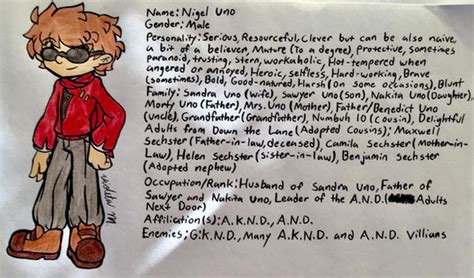 Name: Nigel Uno
Gender: Male
Personality: Serious, Resourceful, Clever but can be also naive
a bit of a believer, Mature (To a degree), Protective, sometimes
paranoid, trusting, stern, workaholic, Hot-tempered when
angered or annoyed, Heroic, selfless, Hard-working, Brave
(sometimes), Bold, Good-natured, Harsh (on some occasions), Blunt
Family: Sandra Uno (wife), Sawyer Uno (Son), Nakita Uno (Daughter),
Monty Uno (Father), Mrs. Uno (Mother), Father/Benedict Uno
(uncle), Grandfather (Grandfather), Numbuh 10 (cousin), Delightful
Adults from Down the Lane (Adopted Cousins); Maxwell
Sechster (Father-in-law, deceased), Camila Sechster (Mother-in-
Law), Helen Sechster (sister-in-law), Benjamin Sechster
(Adopted nephew)
Occupation/Rank: Husband of Sandra Uno, Father of
Sawyer and Nakita Uno, Leader of the A.N.D. (Adults
Next Door)
Affiliation(s): A.K.N.D., A.N.D.
Enemies: G.K.N.D., Many A.K.N.D. and A.N.D. Villians